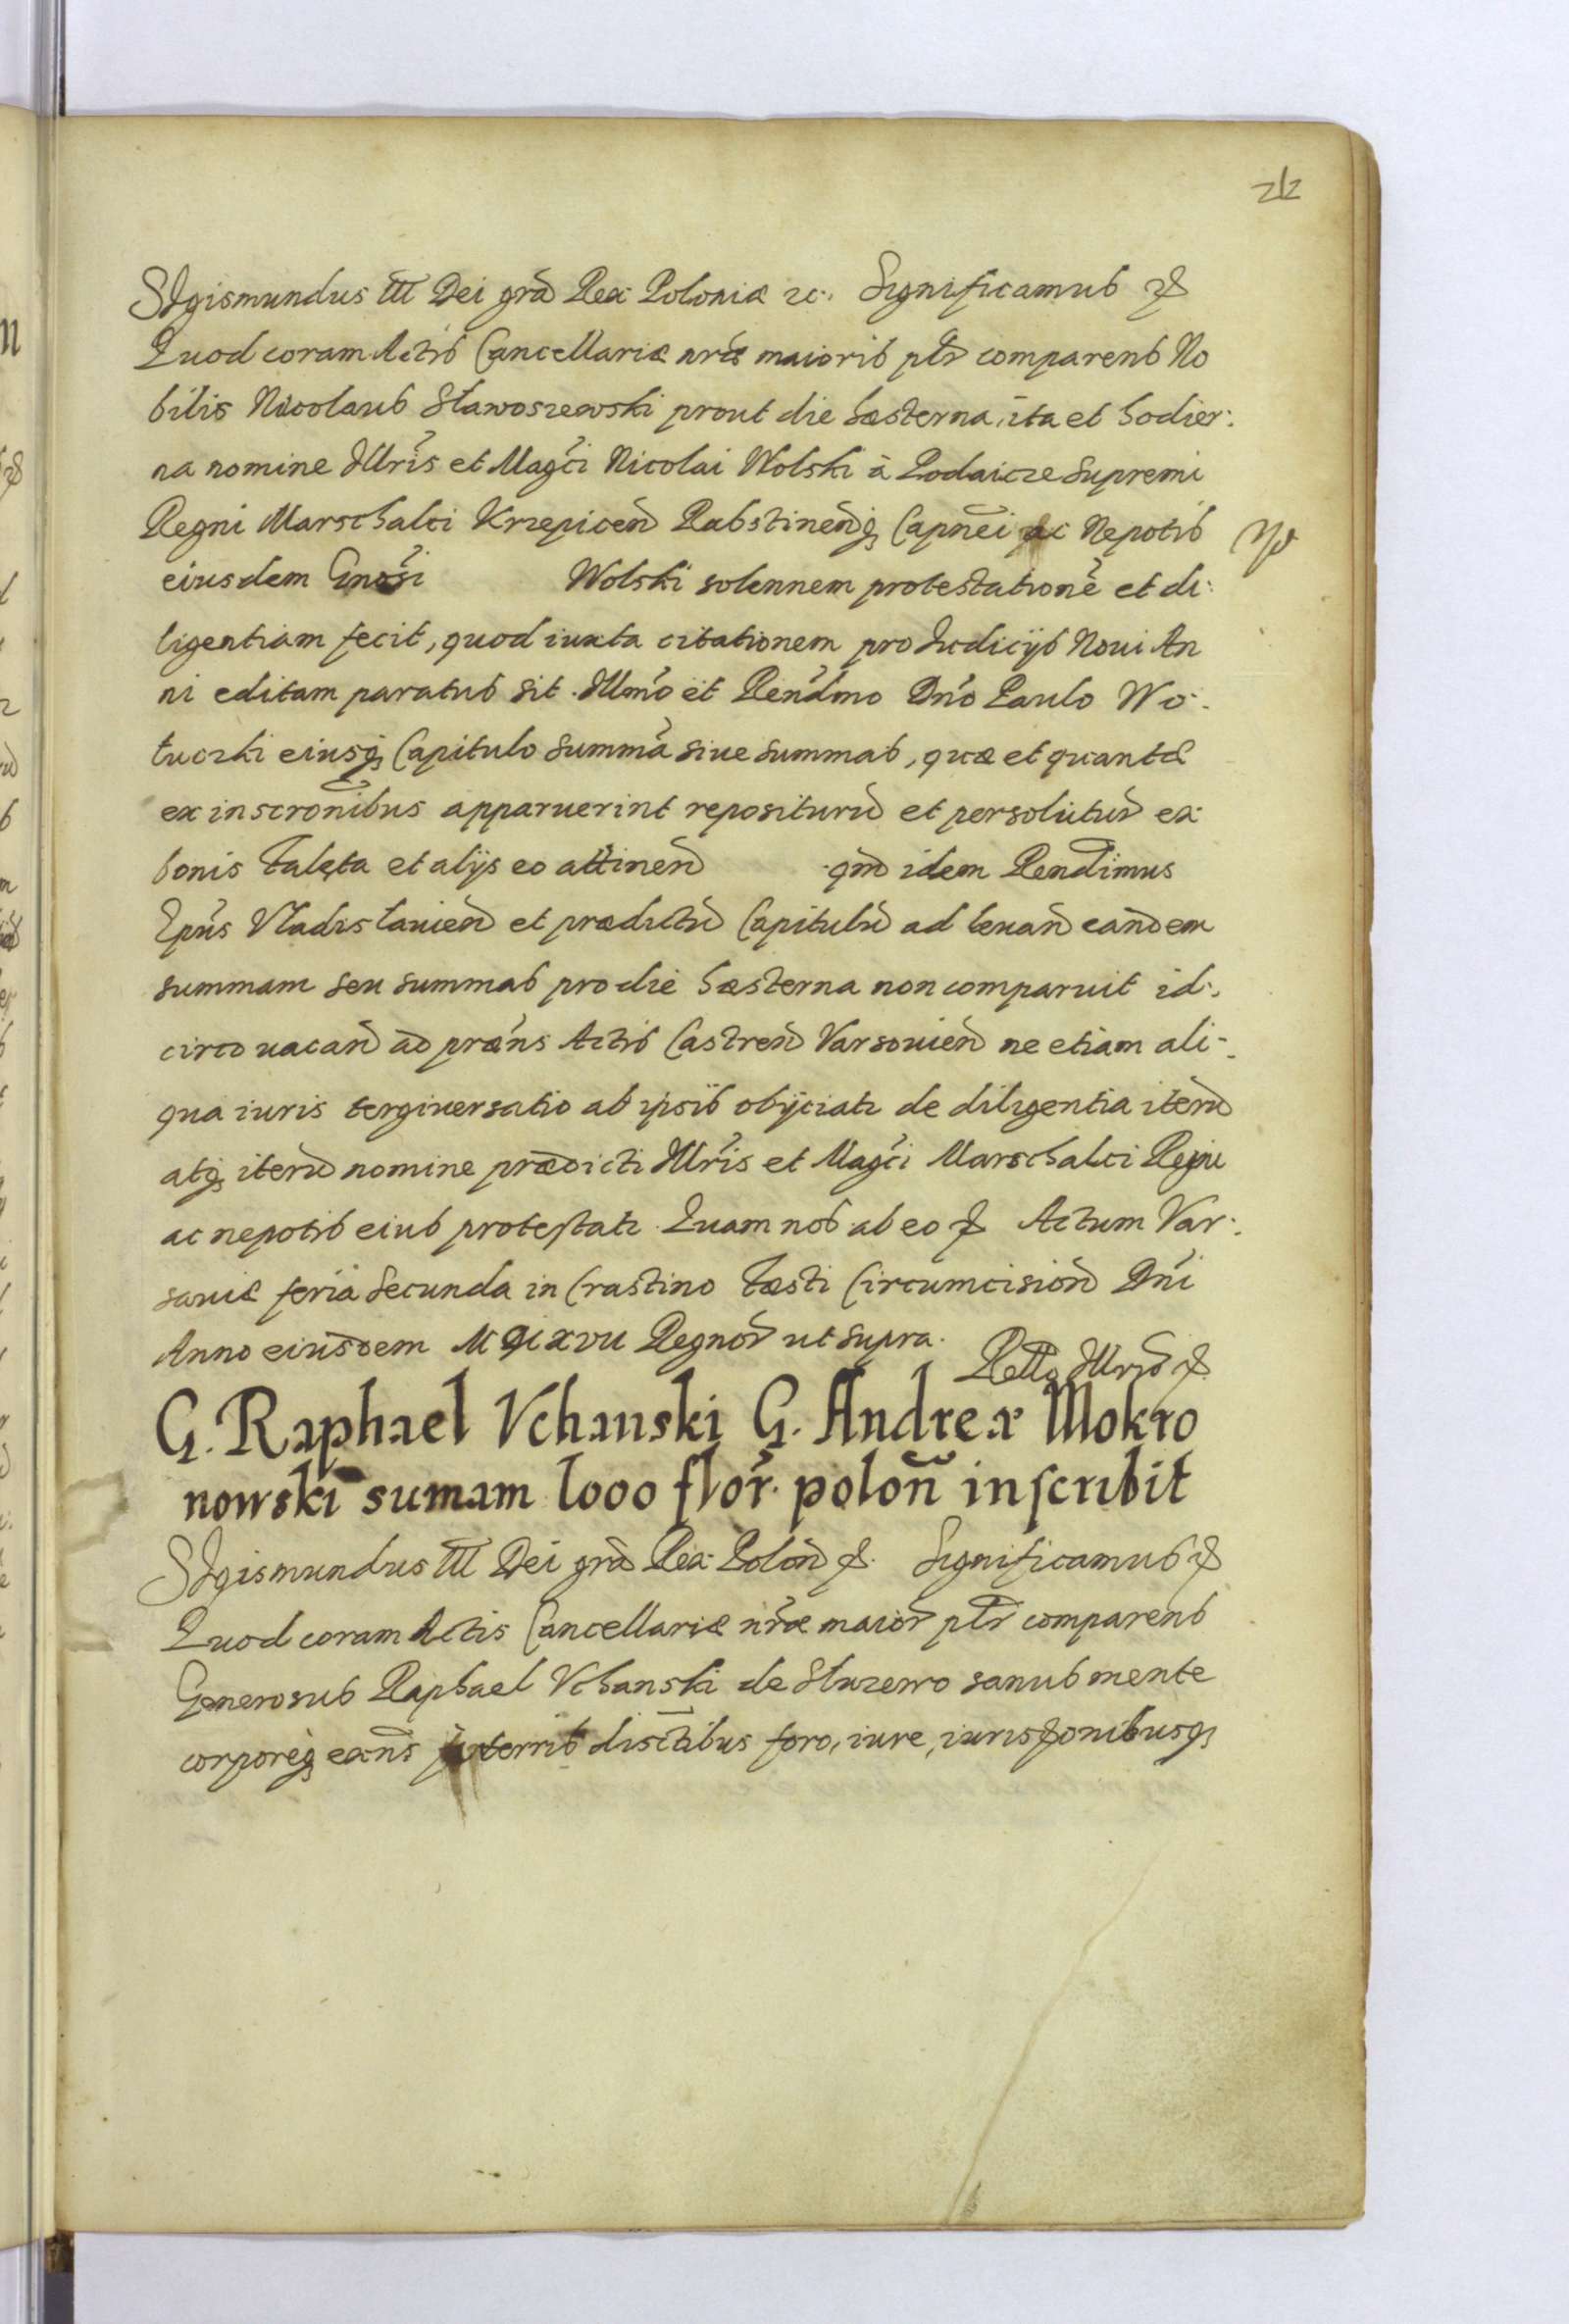 212
SIgismundus III Dei grã Rex Poloniæ ꝛc. Significamus ꝛc
Quod coram Actis Cancellariæ nræ maioris pltr comparens No
bilis Nicolaus Sławoszewski prout die hæsterna, ita et hodier:
na nomine Illris et Magci Nicolai Wolski à Podaicze Supremi
Regni Marschalci Krzepicen Rabstinenq Capnei ac Nepotis
eiusdem Gnosi Wolski solennem protestationẽ et di:
ligentiam fecit, quod iuxta citationem pro Iudicijs Noui An
ni editam paratus sit Illmo et Rendmo Dno Paulo Wo:
łuczki eiusq Capitulo Summã siue summas, quæ et quantæ
ex inscronibus apparuerint repositurũ et persolutur̃ ex
bonis Falęta et alijs eo attinen qm̃ idem Rendimus
Epus Vladislauien et prædictũ Capitulũ ad leuand eandem
summam seu summas pro die hæsterna non comparuit id:
circo uacand ad præns Actis Castren Varsouien ne etiam ali-
qua iuris tergiuersatio ab ipsis obijciatr de diligentia iterũ
atq iterũ nomine prædicti Illris et Magci Marschalci Regni
ac nepotis eius protestatr Quam nos ab eo ꝛc Actum Var:
sauiæ feria Secunda in Crastino Fæsti Circumcision Dni
Anno eiusdem MDCXVII Regnor ut supra.
Rello Illris ꝛc
G. Raphael Vchanski G. Andreæ Mokro
nowski sumam 1000 flor. polon inscribit
SIgismundus III Dei grã Rex Polon ꝛc. Significamus ꝛc
Quod coram Actis Cancellariæ nræ maior pltr comparens
Generosus Raphael Vchanski de Służewo sanus mente
corporeq exns terris disctibus foro, iure, iurisdonibusq